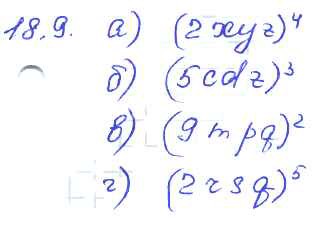 18.9. а) (2xyz)⁴
б) (5cdz)³
в) (9mpq)²
г) (2rsq)⁵